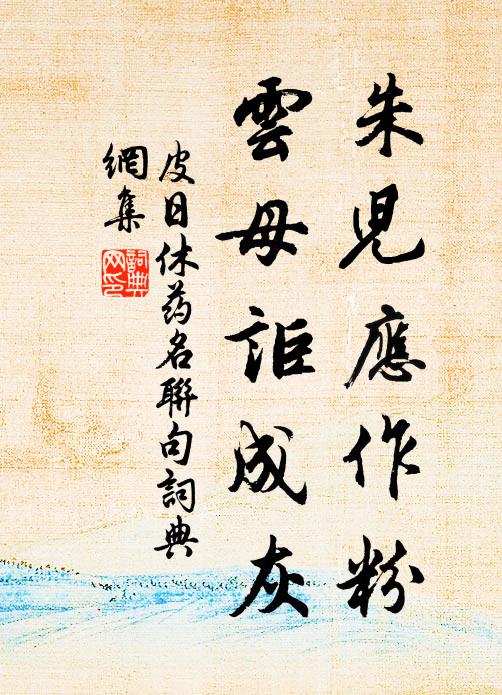 朱児應作粉
雲母詎成灰
皮日休药名聯句詞典
網集
詞典
网印